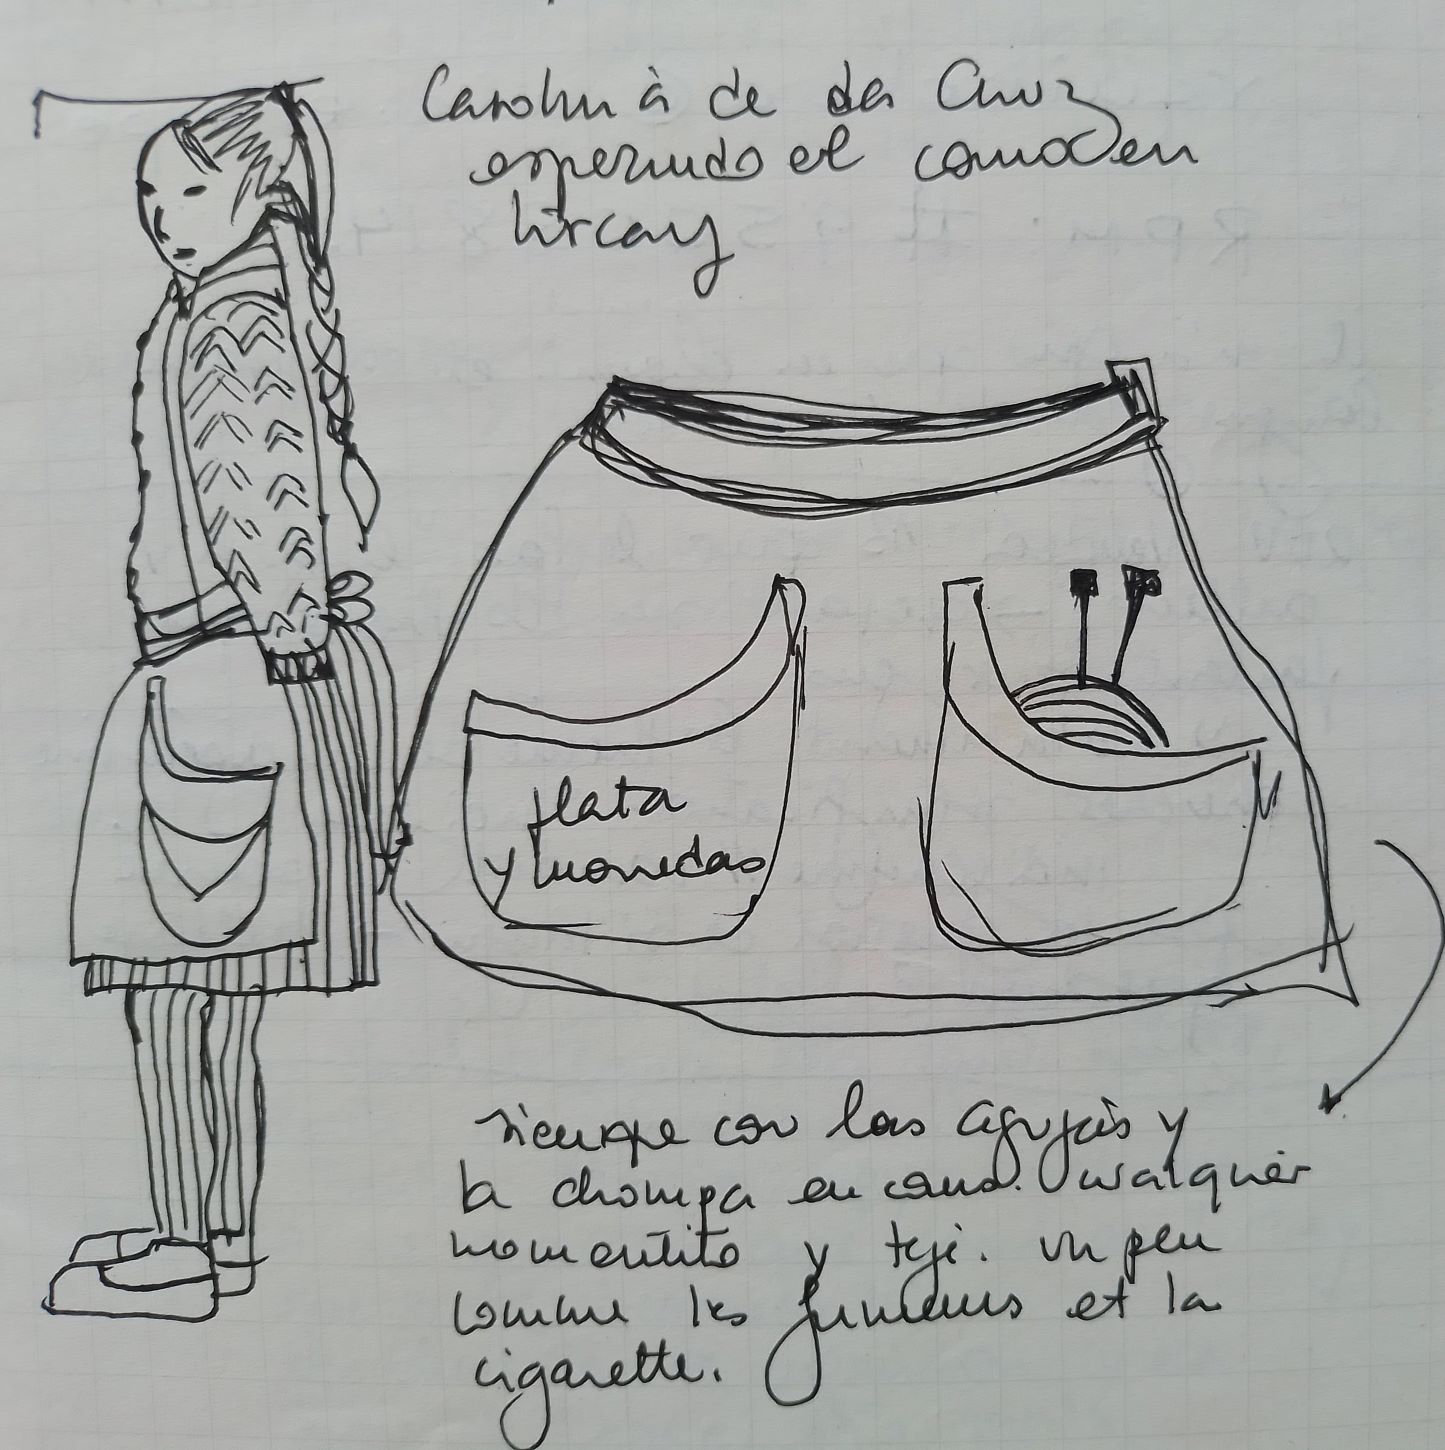 Carolina de la Cruz
esperando el carro en
Lircay
plata
y monedas
siempre con las agujas y
la chompa en cours. Cualquier
momentito y teje. un peu
comme les fumeurs et la
cigarette.